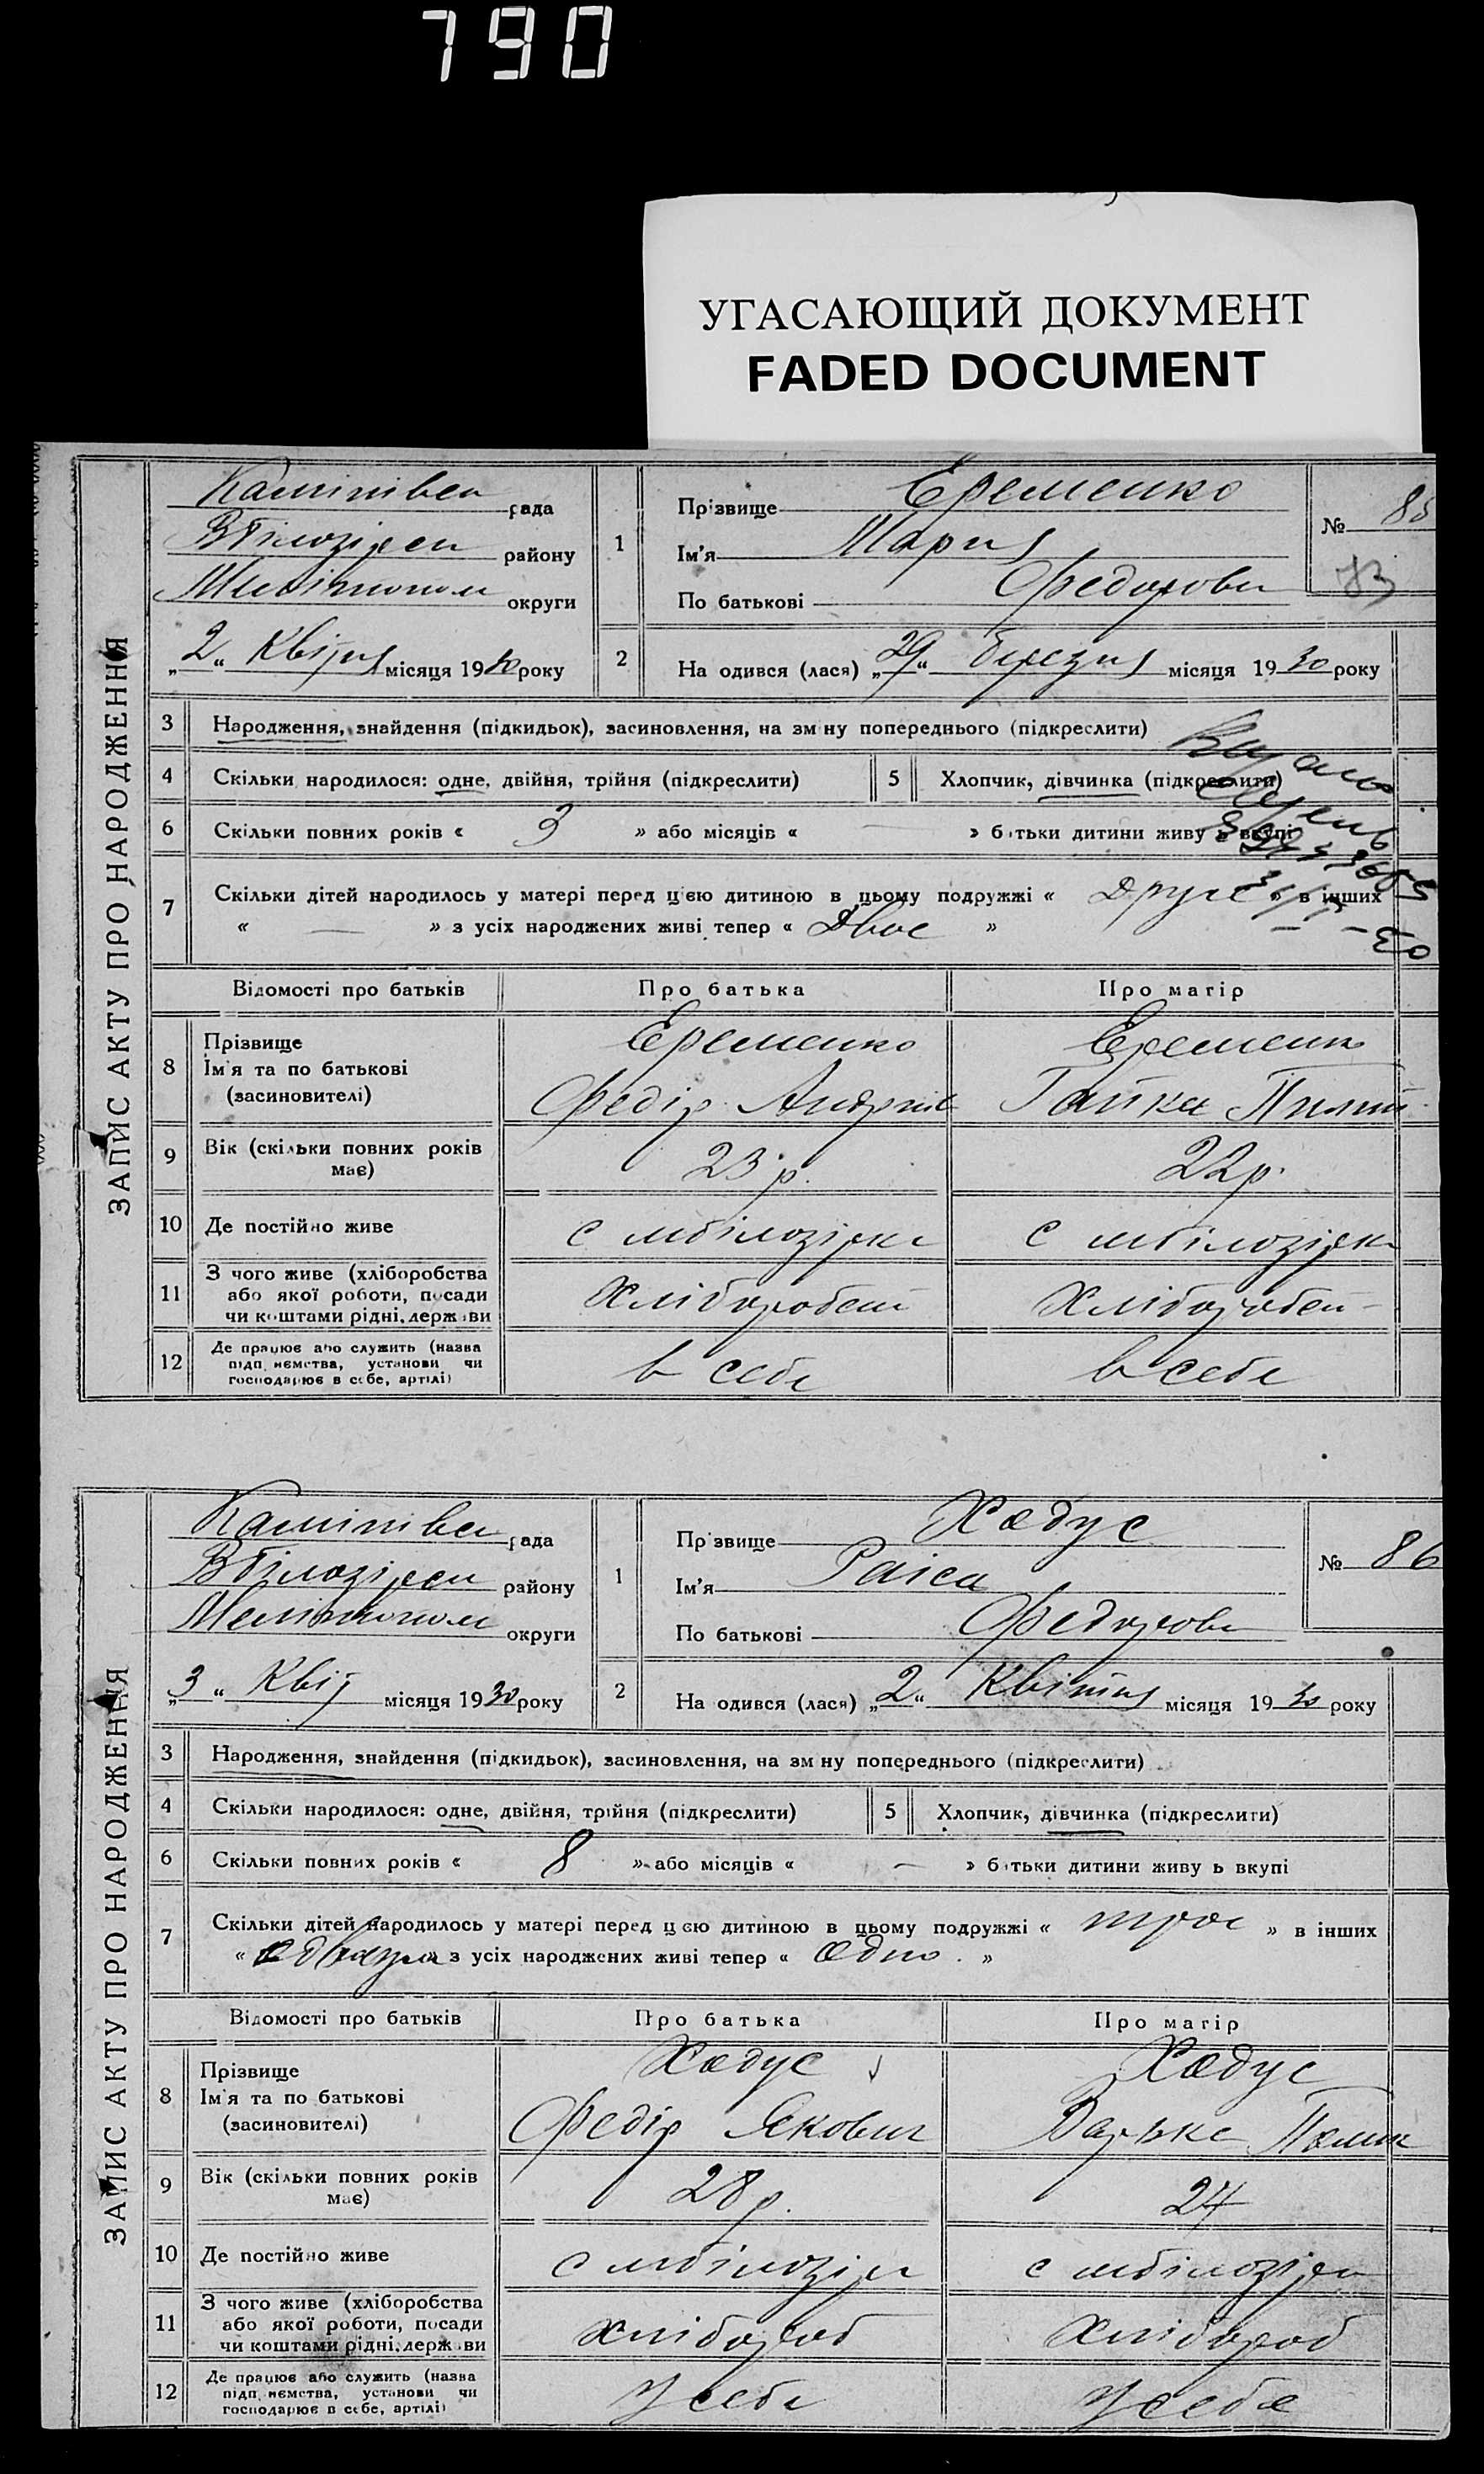 790
УГАСАЮЩИЙ ДОКУМЕНТ
FADED DOCUMENT
ЗАПИС АКТУ ПРО НАРОДЖЕННЯ
рада
району
округи
„2“ Квітня місяця 1930 року
1
Прізвище Еременко
Ім'я Мария
По батькові Федорови
№ 85
73
2
На одився (лася) „29“ березня місяця 1930 року
3 Народження, знайдення (підкидьок), засиновлення, на зм ну попереднього (підкреслити)
4 Скільки народилося: одне, двійня, трійня (підкреслити)
5 Хлопчик, дівчинка (підкреслити)
6 Скільки повних років « 3 » або місяців « — » батьки дитини живу ь вкупі
7 Скільки дітей народилось у матері перед цією дитиною в цьому подружжі « Друге » в інших
« — » з усіх народжених живі тепер « Двое »
Відомості про батьків Про батька Про матір
8 Прізвище
Ім'я та по батькові
(засиновителі)
Еременко
Федір Андрив
Еременко
Гапка
9 Вік (скільки повних років має)
23 р.
22 р.
10 Де постійно живе
с мбілозірка
с мбілозірка
11 З чого живе (хліборобства
або якої роботи, посади
чи коштами рідні, держави
Хлібороб
Хлібороб
12 Де працює або служить (назва
підп иємства, установи чи
господарює в себе, артілі)
в себе
в себе
ЗАПИС АКТУ ПРО НАРОДЖЕННЯ
рада
району
округи
„3“ Квіт місяця 1930 року
1
Пр звище Хадус
Ім'я Раіса
По батькові Федорови
№ 86
2
На одився (лася) „2“ Квітня місяця 1930 року
3 Народження, знайдення (підкидьок), засиновлення, на зм ну попереднього (підкреслити)
4 Скільки народилося: одне, двійня, трійня (підкреслити)
5 Хлопчик, дівчинка (підкреслити)
6 Скільки повних років « 8 » або місяців « — » батьки дитини живу ь вкупі
7 Скільки дітей народилось у матері перед цією дитиною в цьому подружжі « трое » в інших
« » з усіх народжених живі тепер « одно »
Відомості про батьків Про батька Про матір
8 Прізвище
Ім'я та по батькові
(засиновителі)
Хадус
Федір Якович
Хадус
Варька
9 Вік (скільки повних років має)
28 р.
27
10 Де постійно живе
с мбілозір
с мбілозір
11 З чого живе (хліборобства
або якої роботи, посади
чи коштами рідні, держави
хлібороб
хлібороб
12 Де працює або служить (назва
підп иємства, установи чи
господарює в себе, артілі)
У себе
У себе